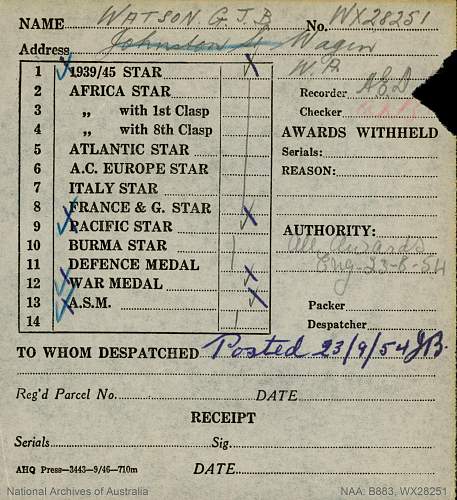 NAME WATSON G J B No. WX28251
Address Johnston St Wagin
W.A.
1 1939/45 STAR
2 AFRICA STAR
3 „ with 1st Clasp
4 „ with 8th Clasp
5 ATLANTIC STAR
6 A.C. EUROPE STAR
7 ITALY STAR
8 FRANCE & G. STAR
9 PACIFIC STAR
10 BURMA STAR
11 DEFENCE MEDAL
12 WAR MEDAL
13 A.S.M.
14
Recorder
Checker
AWARDS WITHHELD
Serials:
REASON:
AUTHORITY:
All Awards
Eng 23-8-54
Packer
Despatcher
TO WHOM DESPATCHED Posted 23/9/54 JB.
Reg'd Parcel No. DATE
RECEIPT
Serials Sig.
AHQ Press—3443—9/46—710m DATE
National Archives of Australia NAA: B883, WX28251